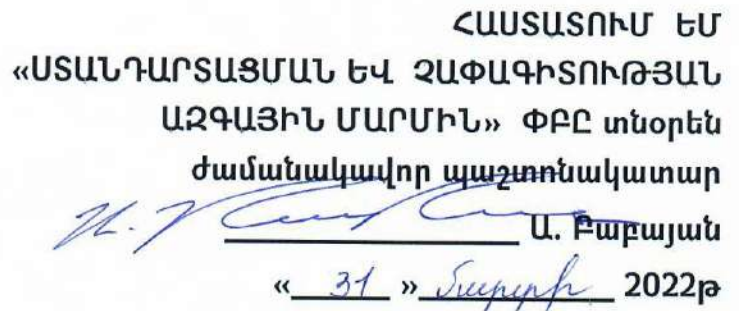 ՀԱՍՏԱՏՈՒՄ ԵՄ
«ՍՏԱՆԴԱՐՏԱՑՄԱՆ ԵՎ ՉԱՓԱԳԻՏՈՒԹՅԱՆ
ԱԶԳԱՅԻՆ ՄԱՐՄԻՆ» ՓԲԸ տնօրեն
ժամանակավոր պաշտոնակատար
Ա. Բաբայան
« 31 » մարտի 2022թ